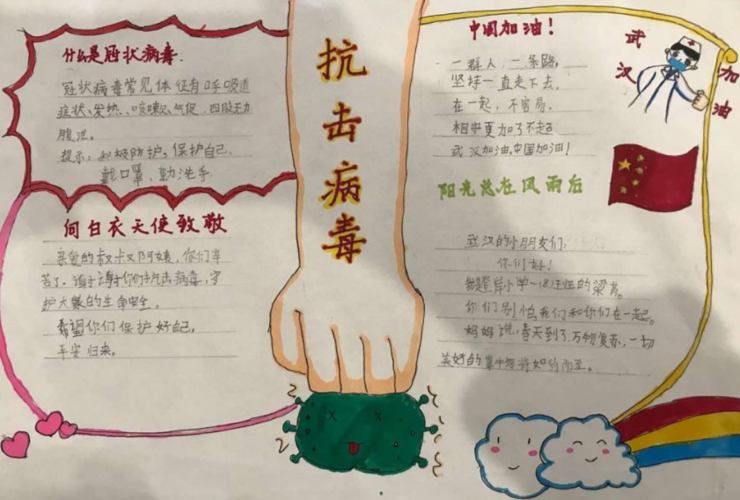 抗击病毒
什么是冠状病毒
冠状病毒常见体征有呼吸道
症状、发热、咳嗽、气促、四肢乏力
腹泻。
提示：积极防护，保护自己，
戴口罩、勤洗手
向白衣天使致敬
亲爱的叔叔阿姨，你们辛
苦了，你们抗击病毒，守
护大家的生命安全。
希望你们保护好自己。
平安归来。
中国加油！
一群人，一条路，
坚持一直走下去，
在一起，不容易，
相守更加了不起
武汉加油，中国加油！
武汉
加油
阳光总在风雨后
武汉的小朋友们：
你们好！
小学一
你们别怕，我们和你们在一起。
妈妈说，春天到了，万物复苏，一切
美好的都将如约而至。